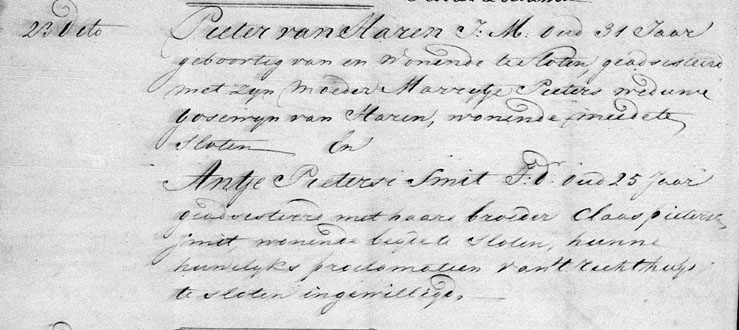 23 Dito Pieter van Haren J: M: Oud 31 Jaar
geboortig van en Wonende te Sloten, geadsisteerd
met zyn Moeder Marrytje Pieters weduwe
Gosewyn van Haren, wonende meede te
Sloten En
Antje Pieterse Smit J: d: oud 25 Jaar
geadsisteerd met haare broeder Claas pieterse
smit wonende beyde te Sloten, hunne
huwelyks proclamatien van't rechthuys
te Sloten ingewillige.